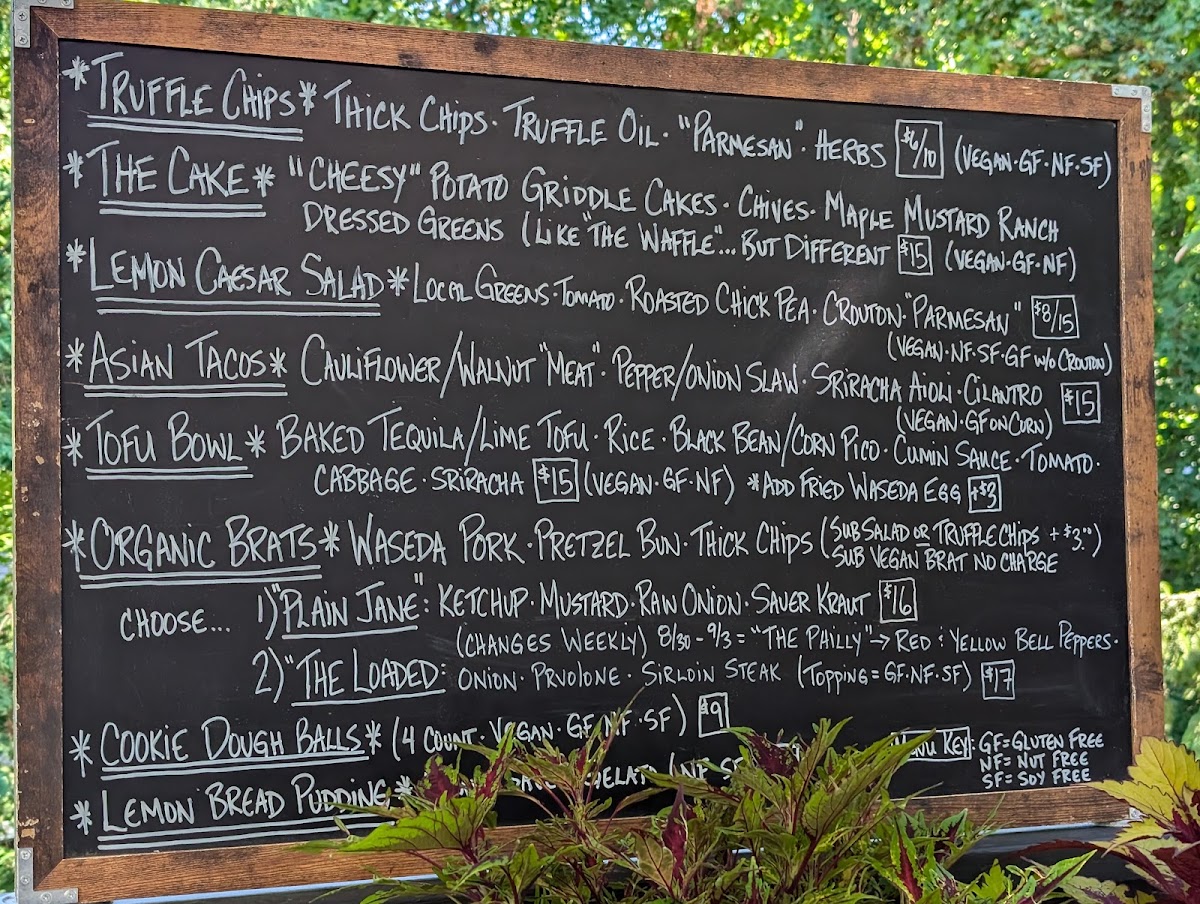 *TRUFFLE CHIPS* THICK CHIPS · TRUFFLE OIL · "PARMESAN" · HERBS $6/10 (VEGAN·GF·NF·SF)
*THE CAKE* "CHEESY" POTATO GRIDDLE CAKES · CHIVES · MAPLE MUSTARD RANCH
DRESSED GREENS (LIKE "THE WAFFLE"... BUT DIFFERENT $15 (VEGAN·GF·NF)
*LEMON CAESAR SALAD* LOCAL GREENS · TOMATO · ROASTED CHICK PEA · CROUTON · "PARMESAN" $8/15
(VEGAN·NF·SF·GF w/o CROUTON)
*ASIAN TACOS* CAULIFLOWER/WALNUT "MEAT" · PEPPER/ONION SLAW · SRIRACHA AIOLI · CILANTRO $15
(VEGAN·GF ON CORN)
*TOFU BOWL* BAKED TEQUILA/LIME TOFU · RICE · BLACK BEAN/CORN PICO · CUMIN SAUCE · TOMATO ·
CABBAGE · SRIRACHA $15 (VEGAN·GF·NF) *ADD FRIED WASEDA EGG +$3
*ORGANIC BRATS* WASEDA PORK · PRETZEL BUN · THICK CHIPS (SUB SALAD OR TRUFFLE CHIPS + $3.00)
SUB VEGAN BRAT NO CHARGE
CHOOSE... 1) "PLAIN JANE": KETCHUP · MUSTARD · RAW ONION · SAUER KRAUT $16
(CHANGES WEEKLY) 8/30 - 9/3 = "THE PHILLY" → RED : YELLOW BELL PEPPERS ·
2) "THE LOADED: ONION · PRVOLONE · SIRLOIN STEAK (TOPPING = GF·NF·SF) $17
*COOKIE DOUGH BALLS* (4 COUNT · VEGAN · GF · NF · SF) $9
*LEMON BREAD PUDDING*
MENU KEY: GF=GLUTEN FREE
NF= NUT FREE
SF= SOY FREE